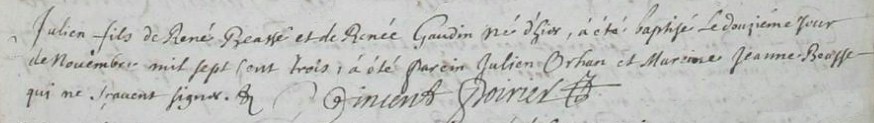 Julien fils de René Beassé et de Renée Gaudin né d'hier, a été baptisé Le douzième jour
de Novembre mil sept cent trois, a été parein Julien Orhan et Mareine Jeanne Beasse
qui ne sçavent signer. Vincent Poirier